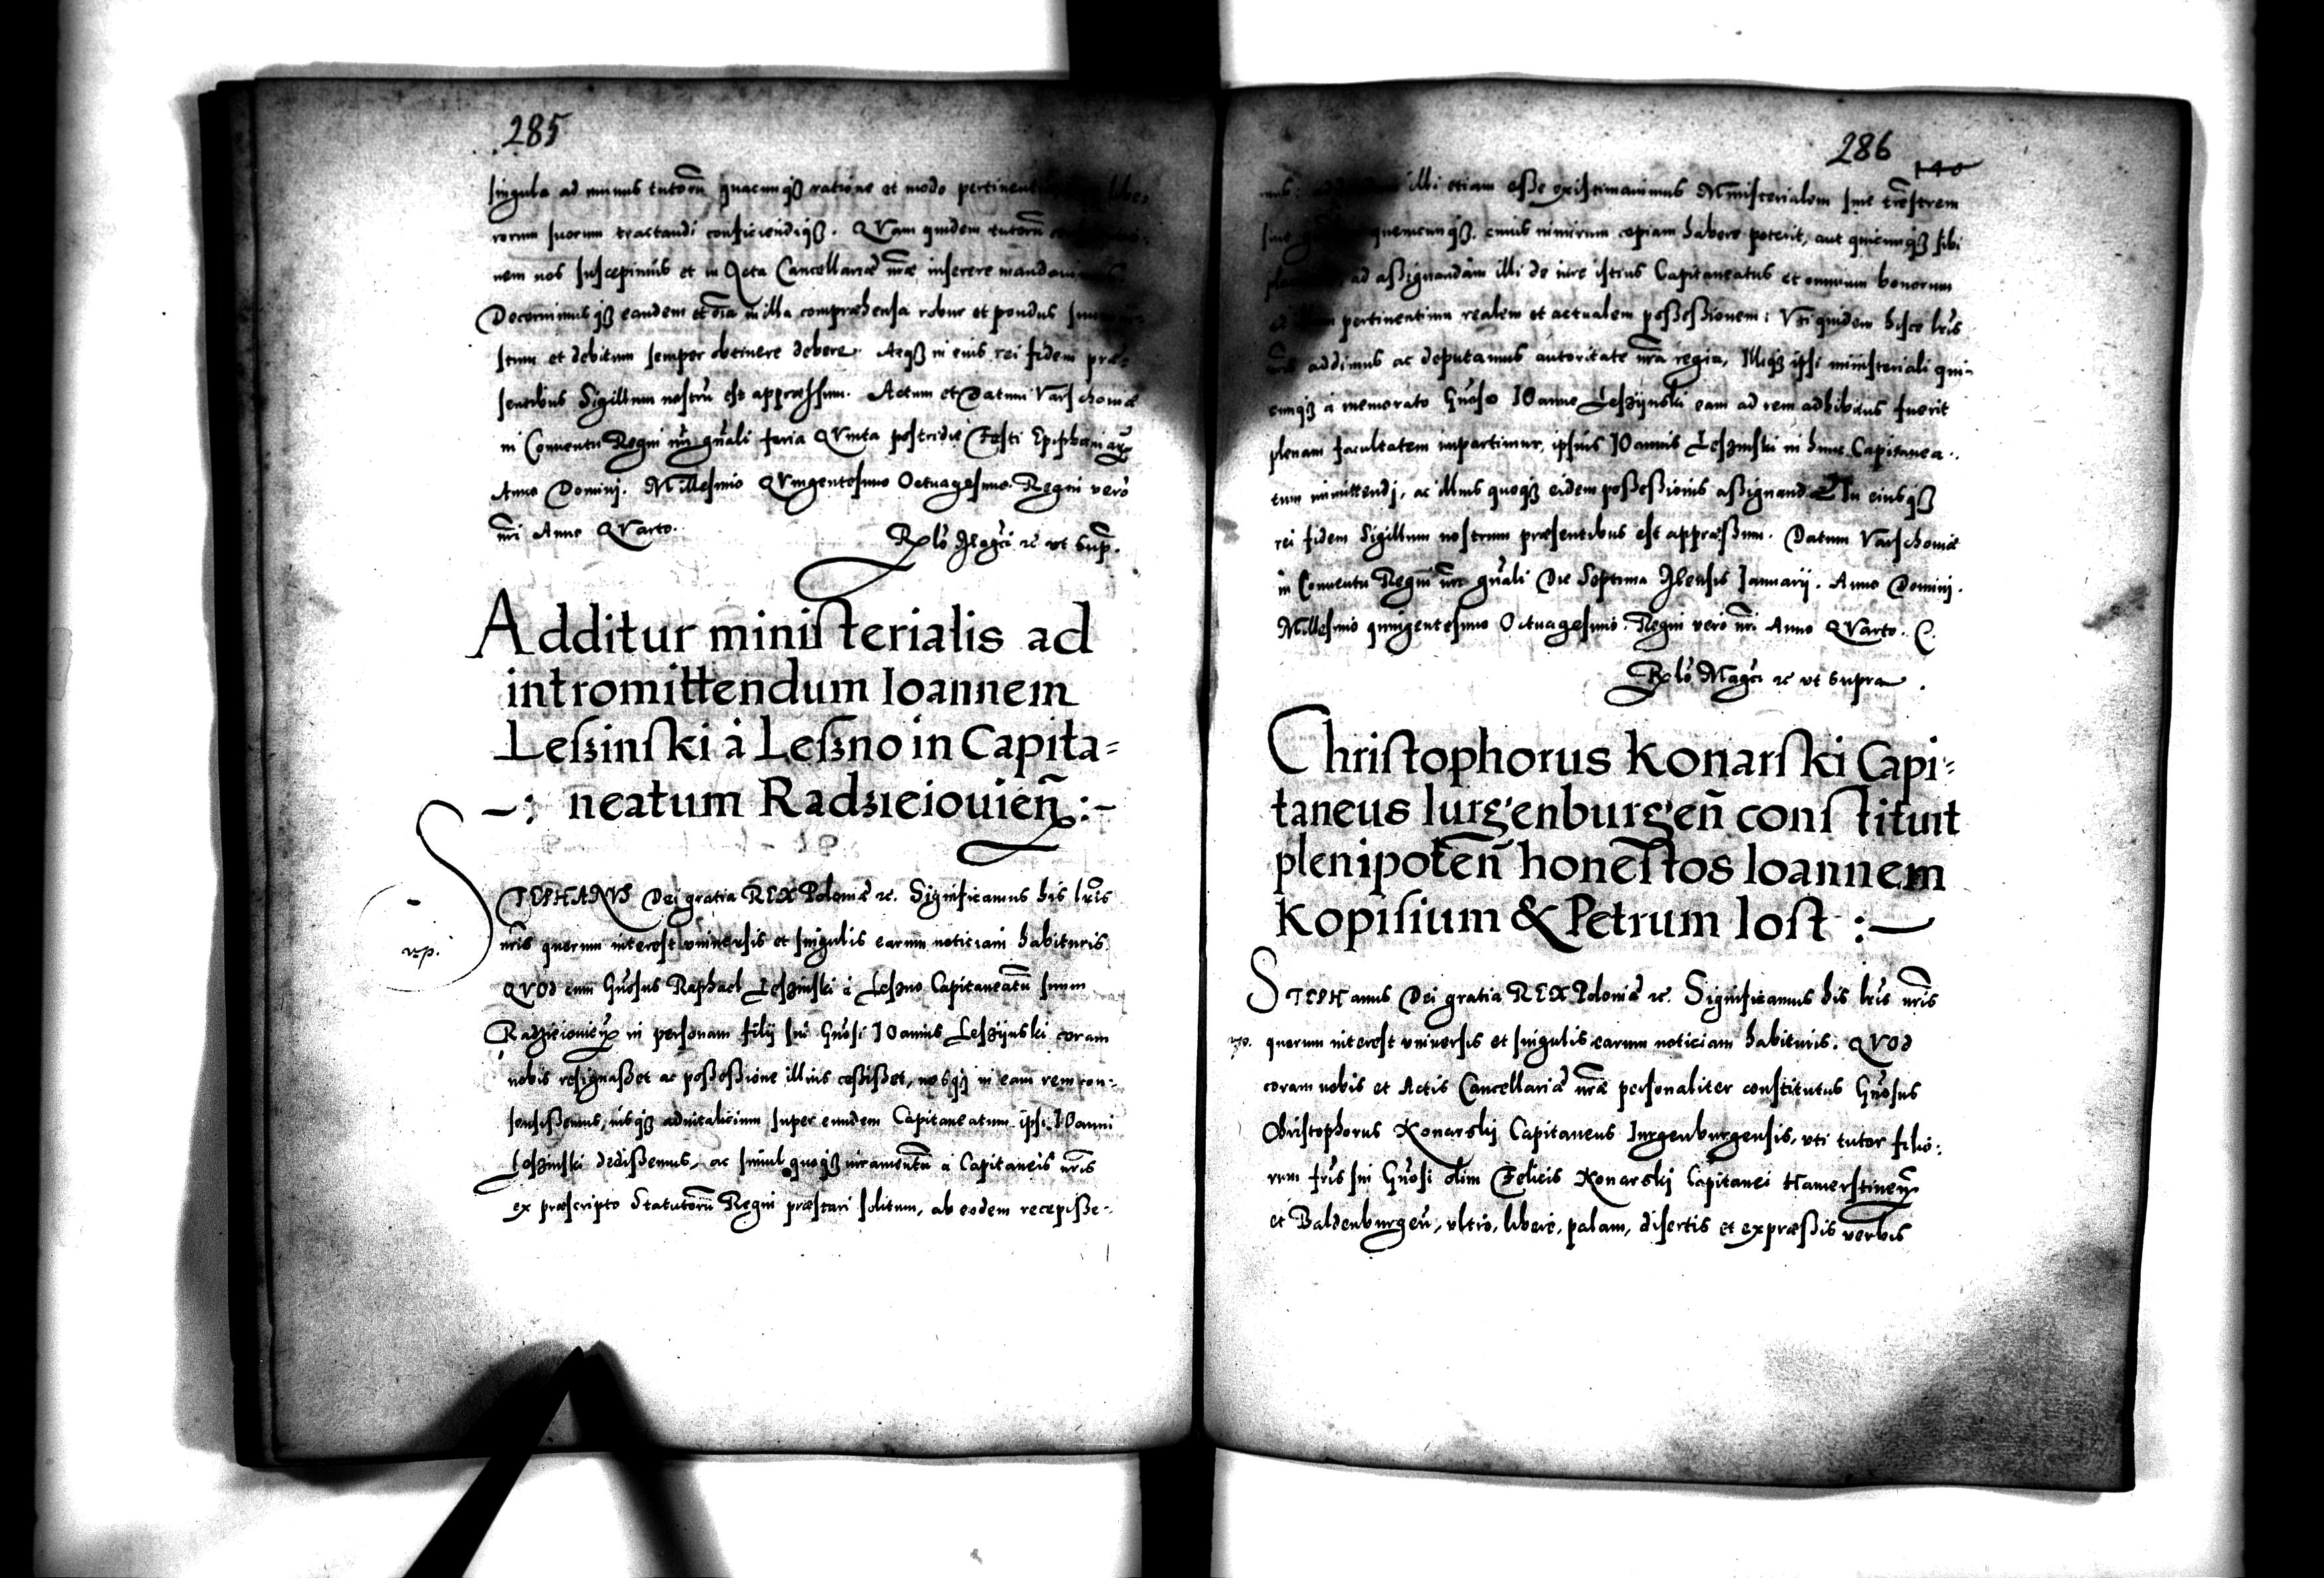 285
singula ad munus tutorũ quacunqȝ ratione et modo pertinent libe-
rorum suorum tractandi conficiendiqȝ. QVam quidem tutorũ
nem nos suscepimus et in Acta Cancellariæ nr̃æ inserere mandavimus
Decernimusqȝ eandem et oĩa in illa compræhensa robur et pondus
stum et debitum semper obtinere debere. Atqȝ in eius rei fidem præ-
sentibus Sigillum nostrũ est appræssum. Actum et Datum Varschoviæ
in Conventu Regni nr̃i gn̄ali feria QVinta postridie Festi Epiphaniarũ
Anno Domini. Millesimo QVingentesimo Octuagesimo. Regni verò
nr̃i Anno QVarto.
Rłò Mag̃ci ꝛc ut sup̃.
Additur ministerialis ad
intromittendum Ioannem
Leßinski à Leßno in Capita=
—: neatum Radzieiouień :—
STEPHANVS Dei gratia REX Poloniæ ꝛc. Significamus his lr̃is
nr̃is quorum interest universis et singulis earum noticiam habituris.
QVOd cum Gñosus Raphael Leszinski à Leszno Capitaneatũ suum
Radzieiovień in personam filij sui Gñosi IOannis Leszijnski coram
nobis resignaßet ac poßeßione illius ceßißet, nosqȝ in eam rem con-
sensißemus, iusqȝ advitalicium super eundem Capitaneatum ipsi IOanni
Leszinski dedißemus, ac simul quoqȝ iuramentũ à Capitaneis nr̃is
ex præscripto Statutorũ Regni præstari solitum, ab eodem recepiße-
286
illi etiam eße existimavimus Ministerialem sive tr̃estrem
quemcunqȝ. cuius nimirum copiam habere poterit, aut quicunqȝ sibi
ad aßignandam illi de iure istius Capitaneatus et omnium bonorum
pertinentium realem et actualem poßeßionem: Vti quidem hisce lr̃is
nr̃is addimus ac deputamus autoritate nr̃a regia, Illiqȝ ipsi ministeriali qui-
cunqȝ à memorato Gñoso IOanne Leszijnski eam ad rem adhibitus fuerit
plenam facultatem impartimur, ipsius IOannis Leszinski in hunc Capitanea-
tum immittendj, ac illius quoqȝ eidem poßeßionis aßignandæ. In eiusqȝ
rei fidem Sigillum nostrum præsentibus est appræßum. Datum Varschoviæ
in Conventu Regni nr̃i gn̄ali Die Septima Mensis Ianuarij. Anno Dominj.
Millesimo quingentesimo Octuagesimo. Regni verò nr̃i Anno QVarto.
Rłò Mag̃ci ꝛc ut supra.
Christophorus Konarski Capi=
taneus Iurgenburgeñ constituit
plenipoteñ honestos Ioannem
Kopisium & Petrum Iost :—
STEPHanus Dei gratia REX Poloniæ ꝛc. Significamus his lr̃is nr̃is
quorum interest universis et singulis earum noticiam habituris. QVOd
coram nobis et Actis Cancellariæ nr̃æ personaliter constitutus Gñosus
Christophorus Konarskij Capitaneus Iurgenburgensis, uti tutor filio-
rum fr̃is sui Gñosi olim Felicis Konarskij Capitanei Hamerstineñ
et Baldenburgeñ, ultrò, liberè, palam, disertis et expræßis verbis